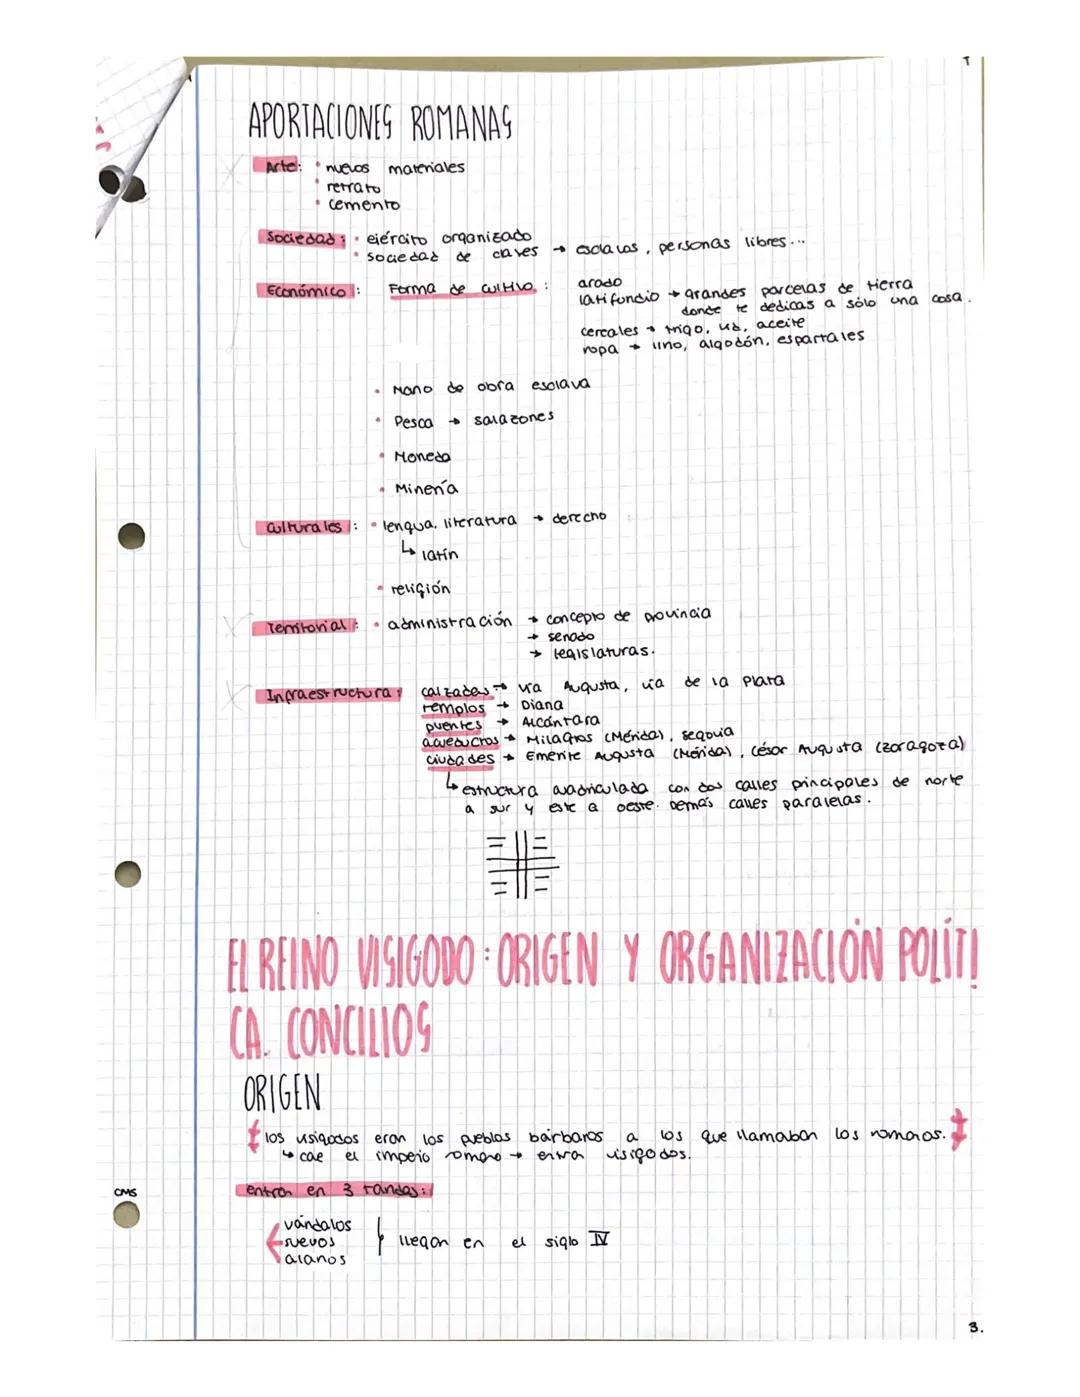 APORTACIONES ROMANAS
Arte: • nuevos materiales
• retrato
• cemento
Sociedad: • ejército organizado
• sociedad de claves → esclavos, personas libres...
Económico: Forma de cultivo: arado
latifundio → grandes parcelas de tierra
donde te dedicas a sólo una cosa.
cereales → trigo, vid, aceite
ropa → lino, algodón, espartales
• Mano de obra esclava
• Pesca → salazones
• Moneda
• Minería
Culturales: • lengua, literatura → derecho
↳ latín
• religión
Territorial: • administración → concepto de provincia
→ senado
→ legislaturas.
Infraestructura: calzadas → vía Augusta, vía de la Plata
templos → Diana
puentes → Alcántara
acueductos → Milagros (Mérida), segovia
ciudades → Emerite Augusta (Mérida), César Augusta (zaragoza)
↳ estructura cuadriculada con dos calles principales de norte
a sur y este a oeste. Demás calles paralelas.
EL REINO VISIGODO: ORIGEN Y ORGANIZACIÓN POLÍTI
CA. CONCILIOS
ORIGEN
los visigodos eran los pueblos bárbaros a los que llamaban los romanos.
↳ cae el imperio romano → entra visigodos.
entran en 3 tandas:
vándalos
suevos
alanos
llegan en el siglo IV
CMS
3.